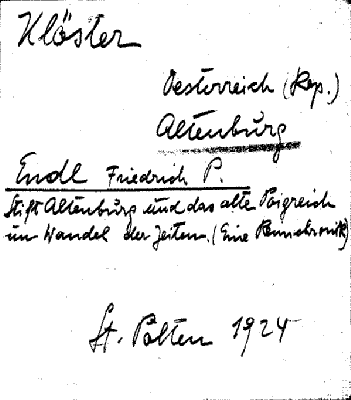 Klöster
Oesterreich (Rep.)
Altenburg
Endl Friedrich P.
Stift Altenburg und das alte Poigreich
im Wandel der Zeiten. (Eine
St. Pölten 1924